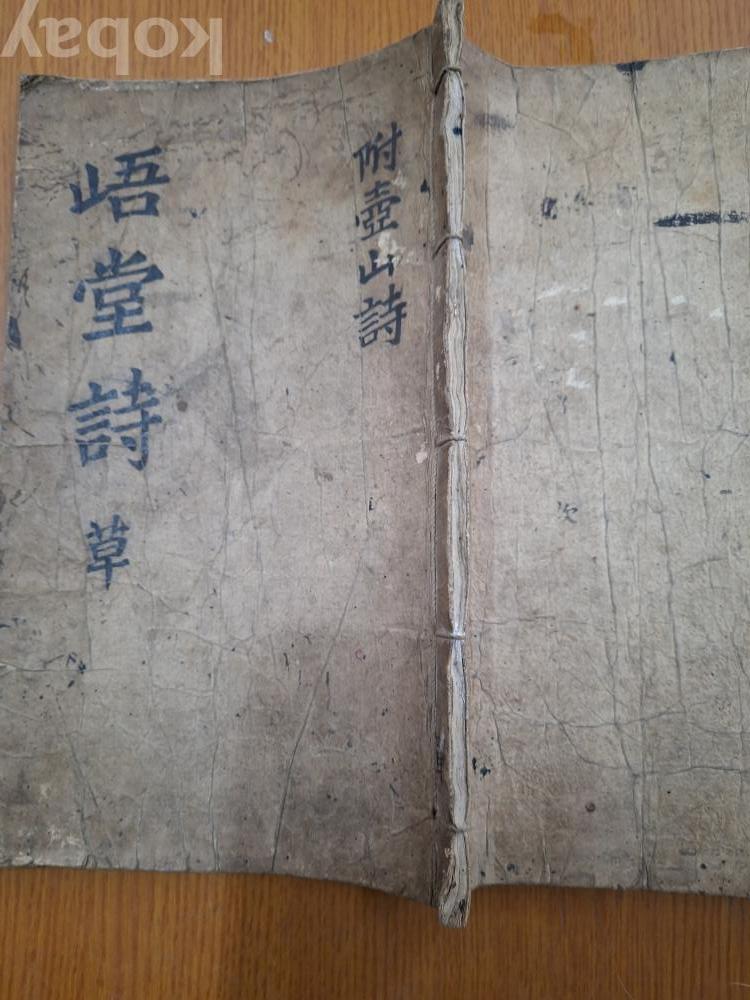 kobay
峿堂詩草
附壺山詩
次